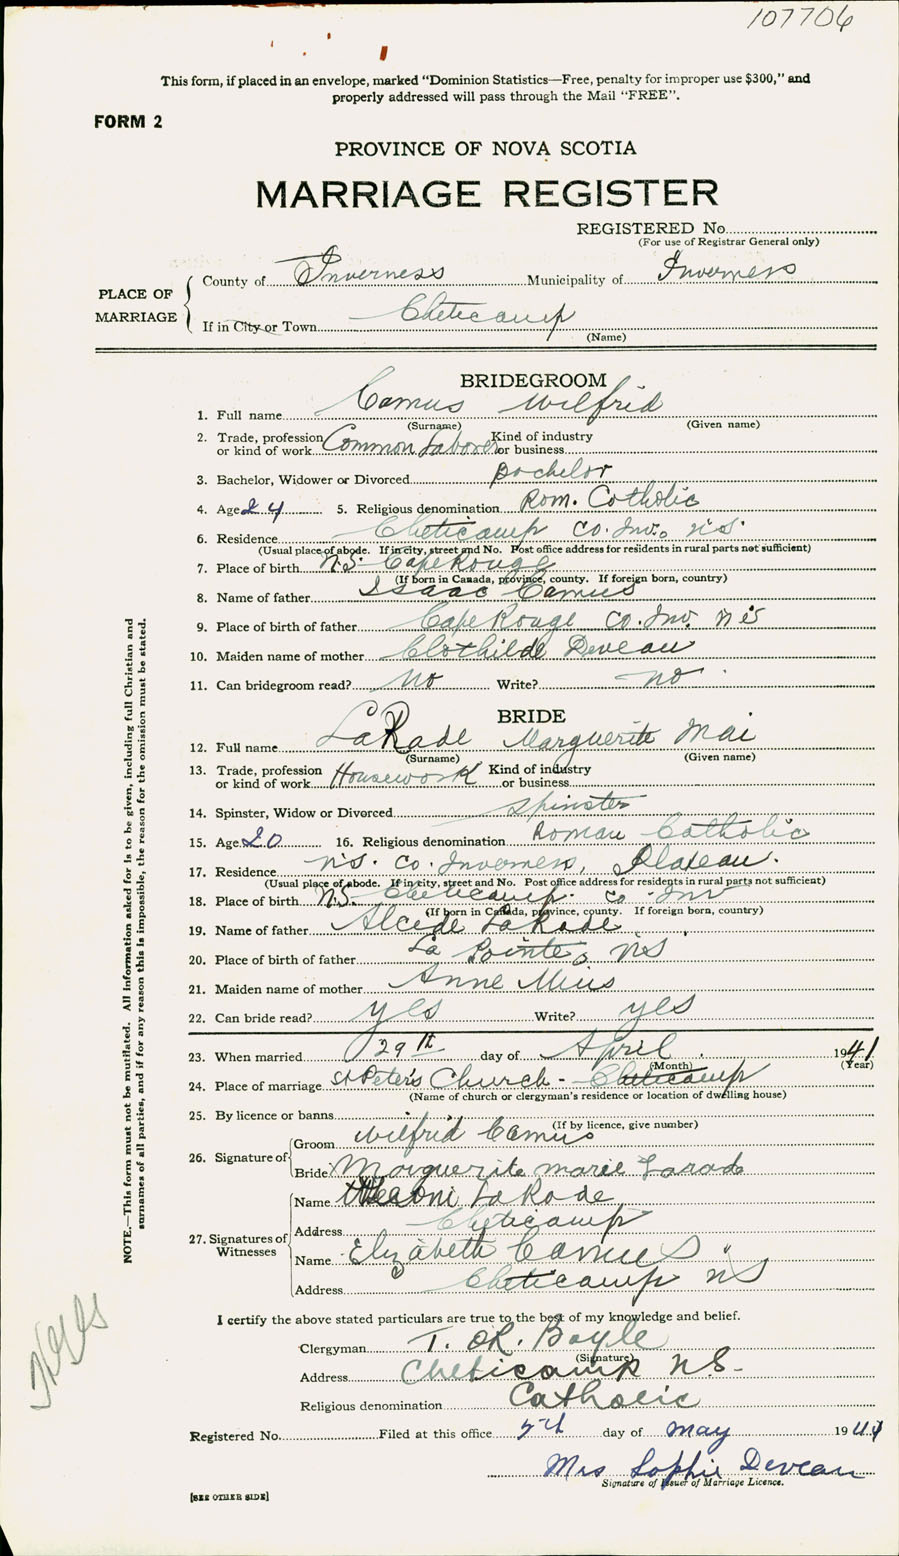 107706
This form, if placed in an envelope, marked "Dominion Statistics—Free, penalty for improper use $300," and
properly addressed will pass through the Mail "FREE".
FORM 2
PROVINCE OF NOVA SCOTIA
MARRIAGE REGISTER
REGISTERED No.
(For use of Registrar General only)
PLACE OF MARRIAGE
County of Inverness Municipality of Inverness
If in City or Town Cheticamp
(Name)
BRIDEGROOM
1. Full name Camus Wilfrid
(Surname) (Given name)
2. Trade, profession or kind of work Common Laborer Kind of industry or business
3. Bachelor, Widower or Divorced Bachelor
4. Age 24 5. Religious denomination Rom. Catholic
6. Residence Cheticamp Co. Inv. N.S.
(Usual place of abode. If in city, street and No. Post office address for residents in rural parts not sufficient)
7. Place of birth N.S. Cape Rouge
(If born in Canada, province, county. If foreign born, country)
8. Name of father Isaac Camus
9. Place of birth of father Cape Rouge Co. Inv. N S
10. Maiden name of mother Clothilde Deveau
11. Can bridegroom read? No Write? no
BRIDE
12. Full name LaRade Marguerite Mai
(Surname) (Given name)
13. Trade, profession or kind of work Housework Kind of industry or business
14. Spinster, Widow or Divorced Spinster
15. Age 20 16. Religious denomination Roman Catholic
17. Residence N.S. Co. Inverness, Plateau.
(Usual place of abode. If in city, street and No. Post office address for residents in rural parts not sufficient)
18. Place of birth N.S. Cheticamp Co Inv
(If born in Canada, province, county. If foreign born, country)
19. Name of father Alcide LaRade
20. Place of birth of father La Pointe, NS
21. Maiden name of mother Anne Mius
22. Can bride read? yes Write? yes
23. When married 29th day of April 1941
(Month) (Year)
24. Place of marriage St Peter's Church - Cheticamp
(Name of church or clergyman's residence or location of dwelling house)
25. By licence or banns
(If by licence, give number)
26. Signature of
Groom Wilfrid Camus
Bride Marguerite marie Larade
27. Signatures of Witnesses
Name LaRade
Address Cheticamp
Name Elizabeth Camus
Address Cheticamp NS
I certify the above stated particulars are true to the best of my knowledge and belief.
Clergyman T. OR. Boyle
(Signature)
Address Cheticamp N.S.
Religious denomination Catholic
Registered No. Filed at this office 5th day of May 1941
Mrs Sophie Deveau
Signature of Issuer of Marriage Licence.
[SEE OTHER SIDE]
NOTE.—This form must not be mutilated. All information asked for is to be given, including full Christian and
surnames of all parties, and if for any reason this is impossible, the reason for the omission must be stated.